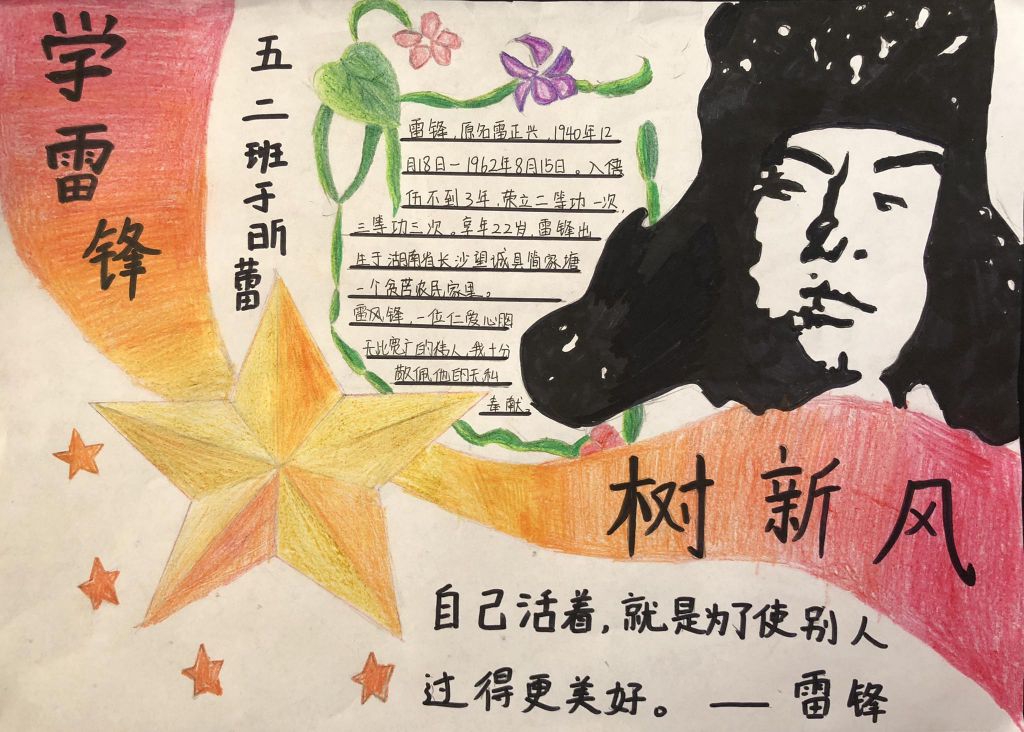 学雷锋
五二班于昕蕾
雷锋,原名雷正兴,1940年12
月18日-1962年8月15日。入伍
伍不到3年,荣立二等功一次,
三等功三次。享年22岁,雷锋出
生于湖南省长沙望城县简家塘
一个贫苦农民家里。
雷风锋,一位仁爱心胸
无比宽广的伟人,我十分
敬佩他的无私
奉献。
树新风
自己活着,就是为了使别人
过得更美好。——雷锋